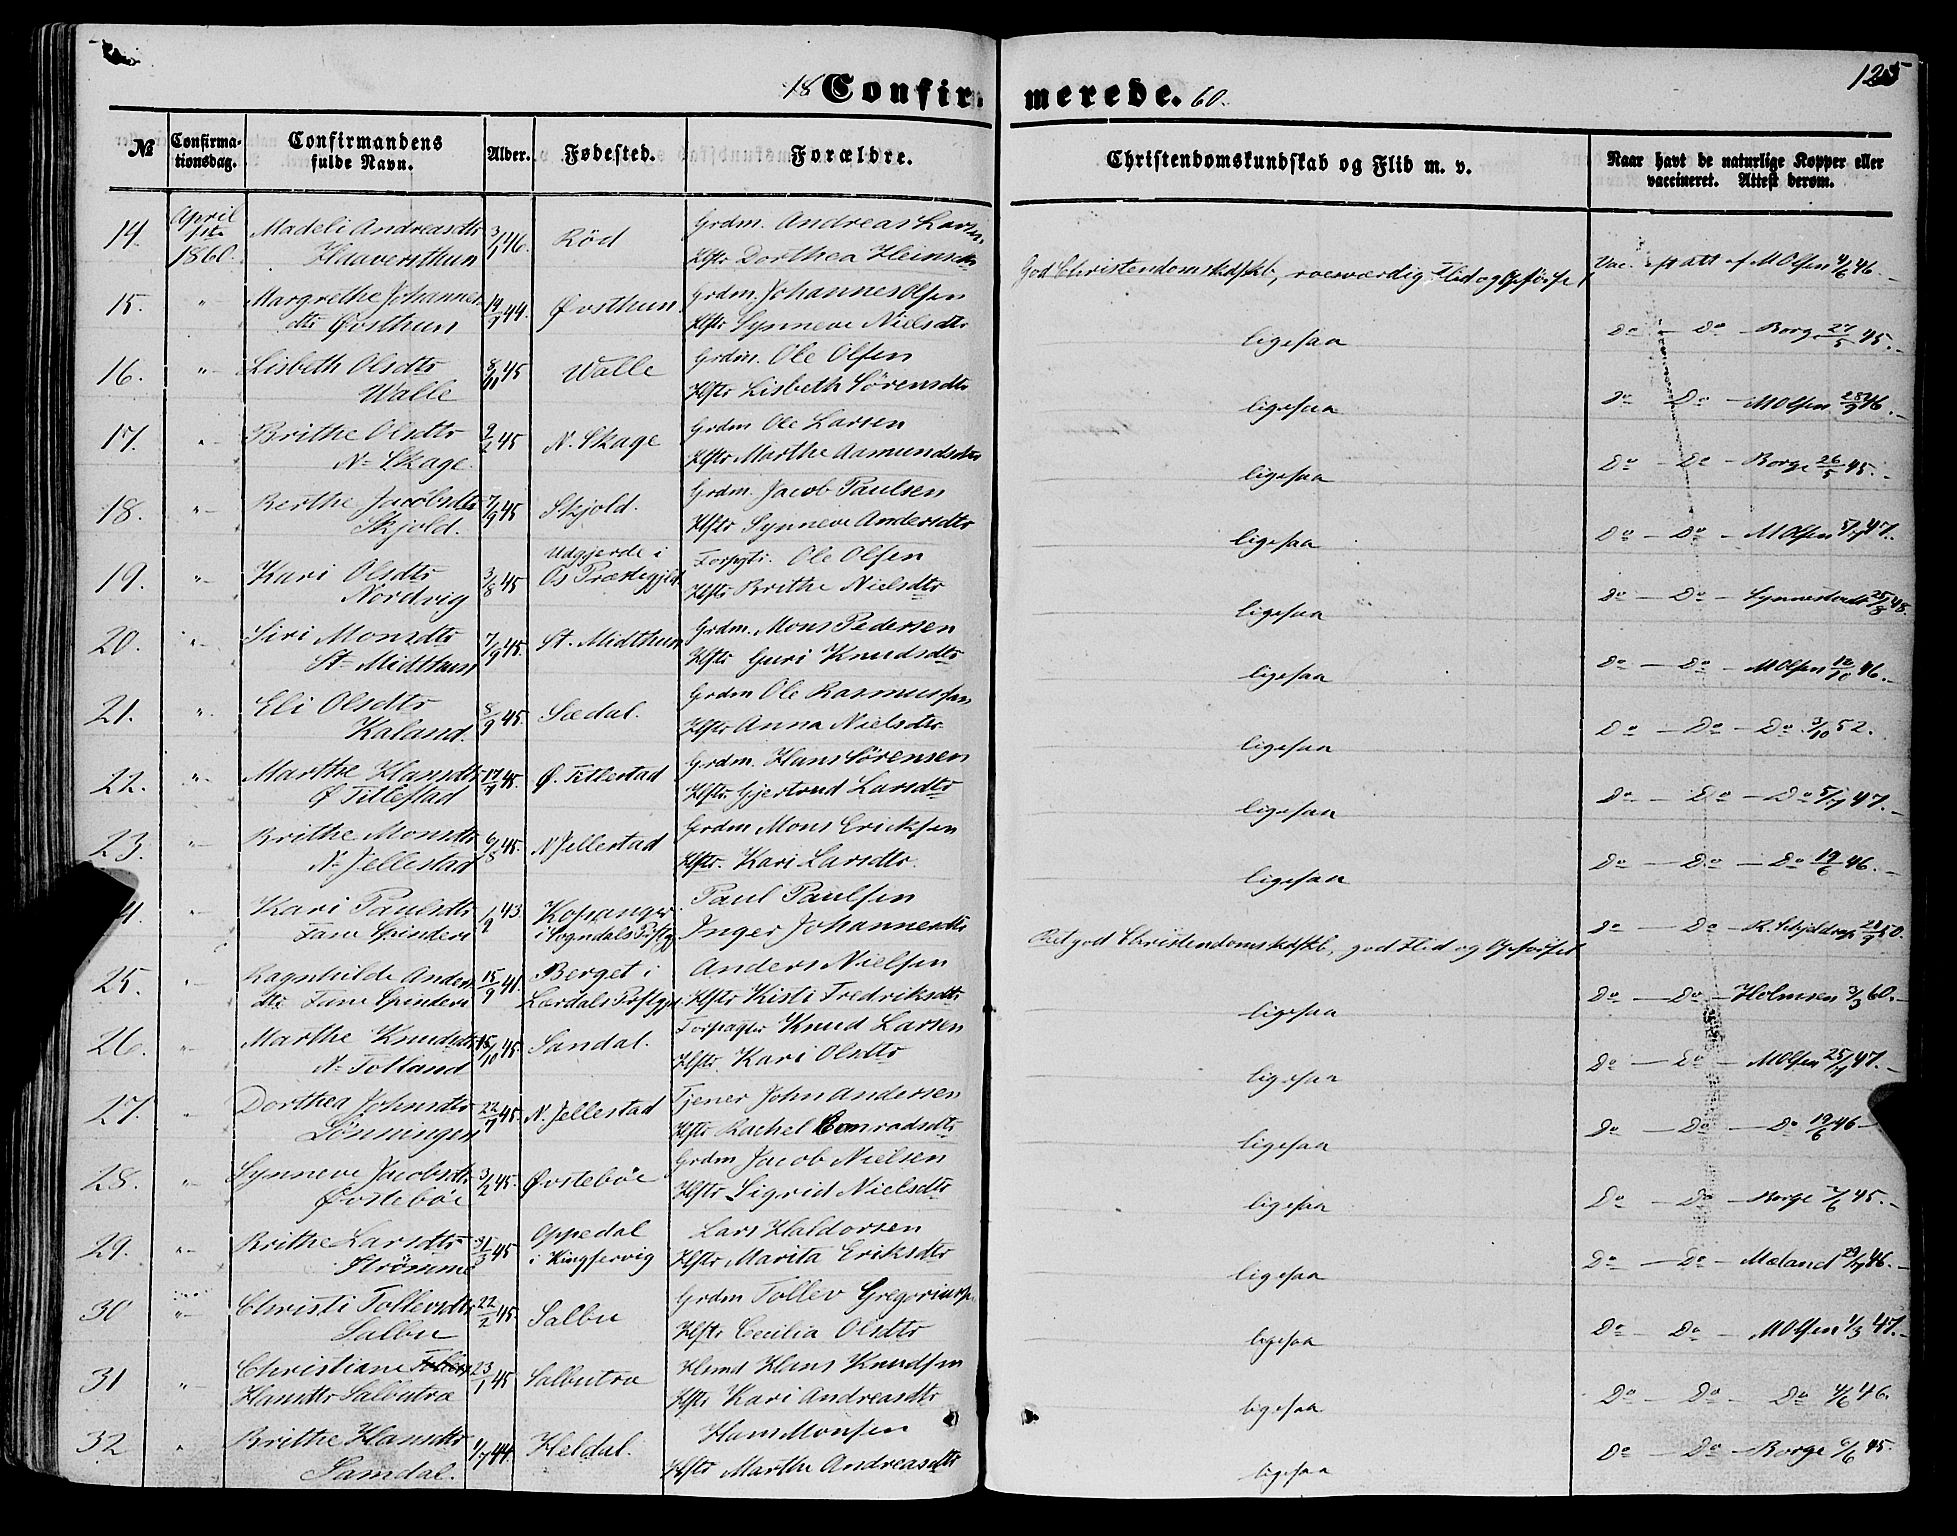 18 Confir- merede. 60.
125
№ Confirma-tionsdag. Confirmandens fulde Navn. Alder. Fødested. Forældre. Christendomskundskab og Flid m. v. Naar havt de naturlige Kopper eller vaccineret. Attest derom.
14. April 1ste 1860. Madeli Andreasdtr 3/1 46. Rød Grdm. Andreas Larsen
Haaversthun Hstr Dorthea Heinsdtr God Christendomskdskb, roesværdig Flid og Opførsel Vac. ept att. af M Olsen 4/6 46.
15. " Margrethe Johannes 19/7 44. Øvsthun Grdm. Johannes Olsen
dtr Øvsthun Hstr Synneve Nielsdtr ligesaa Do — Do — Borge 27/5 45.
16. " Lisbeth Olsdtr 8/11 45 Walle Grdm. Ole Olsen
Walle Hstr Lisbeth Sørensdtr ligesaa Do — Do — M Olsen 28/9 46.
17. " Brithe Olsdtr 9/2 45 N. Skage Grdm Ole Larsen
N. Skage. Hstr Marthe Aamundsdtr ligesaa Do — Do — Borge 26/5 45.
18. " Berthe Jacobsdtr 7/9 45 Skjold. Grdm. Jacob Paulsen
Skjold. Hstr Synneve Andersdtr ligesaa Do — Do — M Olsen 5/7 47.
19. " Kari Olsdtr 3/8 45 Udgjerde i Os Præstegjeld Forpgtr. Ole Olsen
Nordvig Hstr Brithe Nielsdtr ligesaa Do — Do — Synnestvedt 25/8 48.
20. " Siri Monsdtr 7/9 45. St. Midthun Grdm. Mons Pedersen
St. Midthun Hstr Guri Knudsdtr ligesaa Do — Do — M Olsen 12/10 46.
21. " Eli Olsdtr 8/9 45. Sædal. Grdm Ole Rasmussen
Kaland. Hstr Anna Nielsdtr. ligesaa Do — Do — Do 3/10 52.
22. " Marthe Hansdtr 17/9 45. Ø. Titlestad Grdm. Hans Sørensen
Ø Titlestad Hstr. Gjertrud Larsdtr ligesaa Do — Do — Do 5/7 47.
23. " Brithe Monsdtr 6/8 45. N Jellestad Grdm Mons Ericksen
N. Jellestad Hstr. Kari Larsdtr. ligesaa Do — Do — Do 19/6 46.
4. " Kari Paulsdtr 1/2 43 Kopanger i Sogndals Pstgj Paul Paulsen
Fane Spinderi Inger Johannesdtr Ret god Christendomskdskb, god Flid og Opførsel Do — Do — R. Schjelderup 28/9 50.
25. " Ragnhilde Anders 15/9 41. Berget i Anders Nielsen
dtr Fane Spinderi Lærdals Pstgjd Hstr Kisti Fredriksdtr ligesaa Do — Do — Holmsen 3/3 60.
26. " Marthe Knudsdtr 15/10 45. Sandal. Forpagter Knud Larsen
N. Totland Hstr. Kari Olsdtr ligesaa Do — Do — M Olsen 25/7 47.
27. " Dorthea Johnsdtr 22/7 45. N. Jellestad Tjener John Andersen
Lønningen Hstr Rachel Conradsdtr ligesaa Do — Do — Do 19/6 46
28. " Synneve Jacobsdtr 3/2 45. Øvstebøe Grdm Jacob Nielsen
Øvstebøe Hstr Sigrid Nielsdtr ligesaa Do — Do — Borge 7/6 45.
29. " Brithe Larsdtr 31/3 45 Oppedal i Kingservig Lars Haldorsen
Strømme Hstr Marita Eriksdtr ligesaa Do — Do — Meland 29/7 46.
30 " Christi Tollevsdtr 22/2 45. Salbu Grdm Tollev Gregoriusn
Salbu Hstr Cecilia Olsdtr ligesaa Do — Do — M Olsen 1/3 47.
31 " Christiane 23/1 45 Salbutræ Husmd Hans Knudsen
Hansdtr Salbutræ Hstr Kari Andreasdtr ligesaa Do — Do — Do 4/6 46.
32 " Brithe Hansdtr 1/7 44. Heldal. Hans Monsen
Samdal. Hstr Marthe Andreasdtr ligesaa Do — Do — Borge 6/6 45.